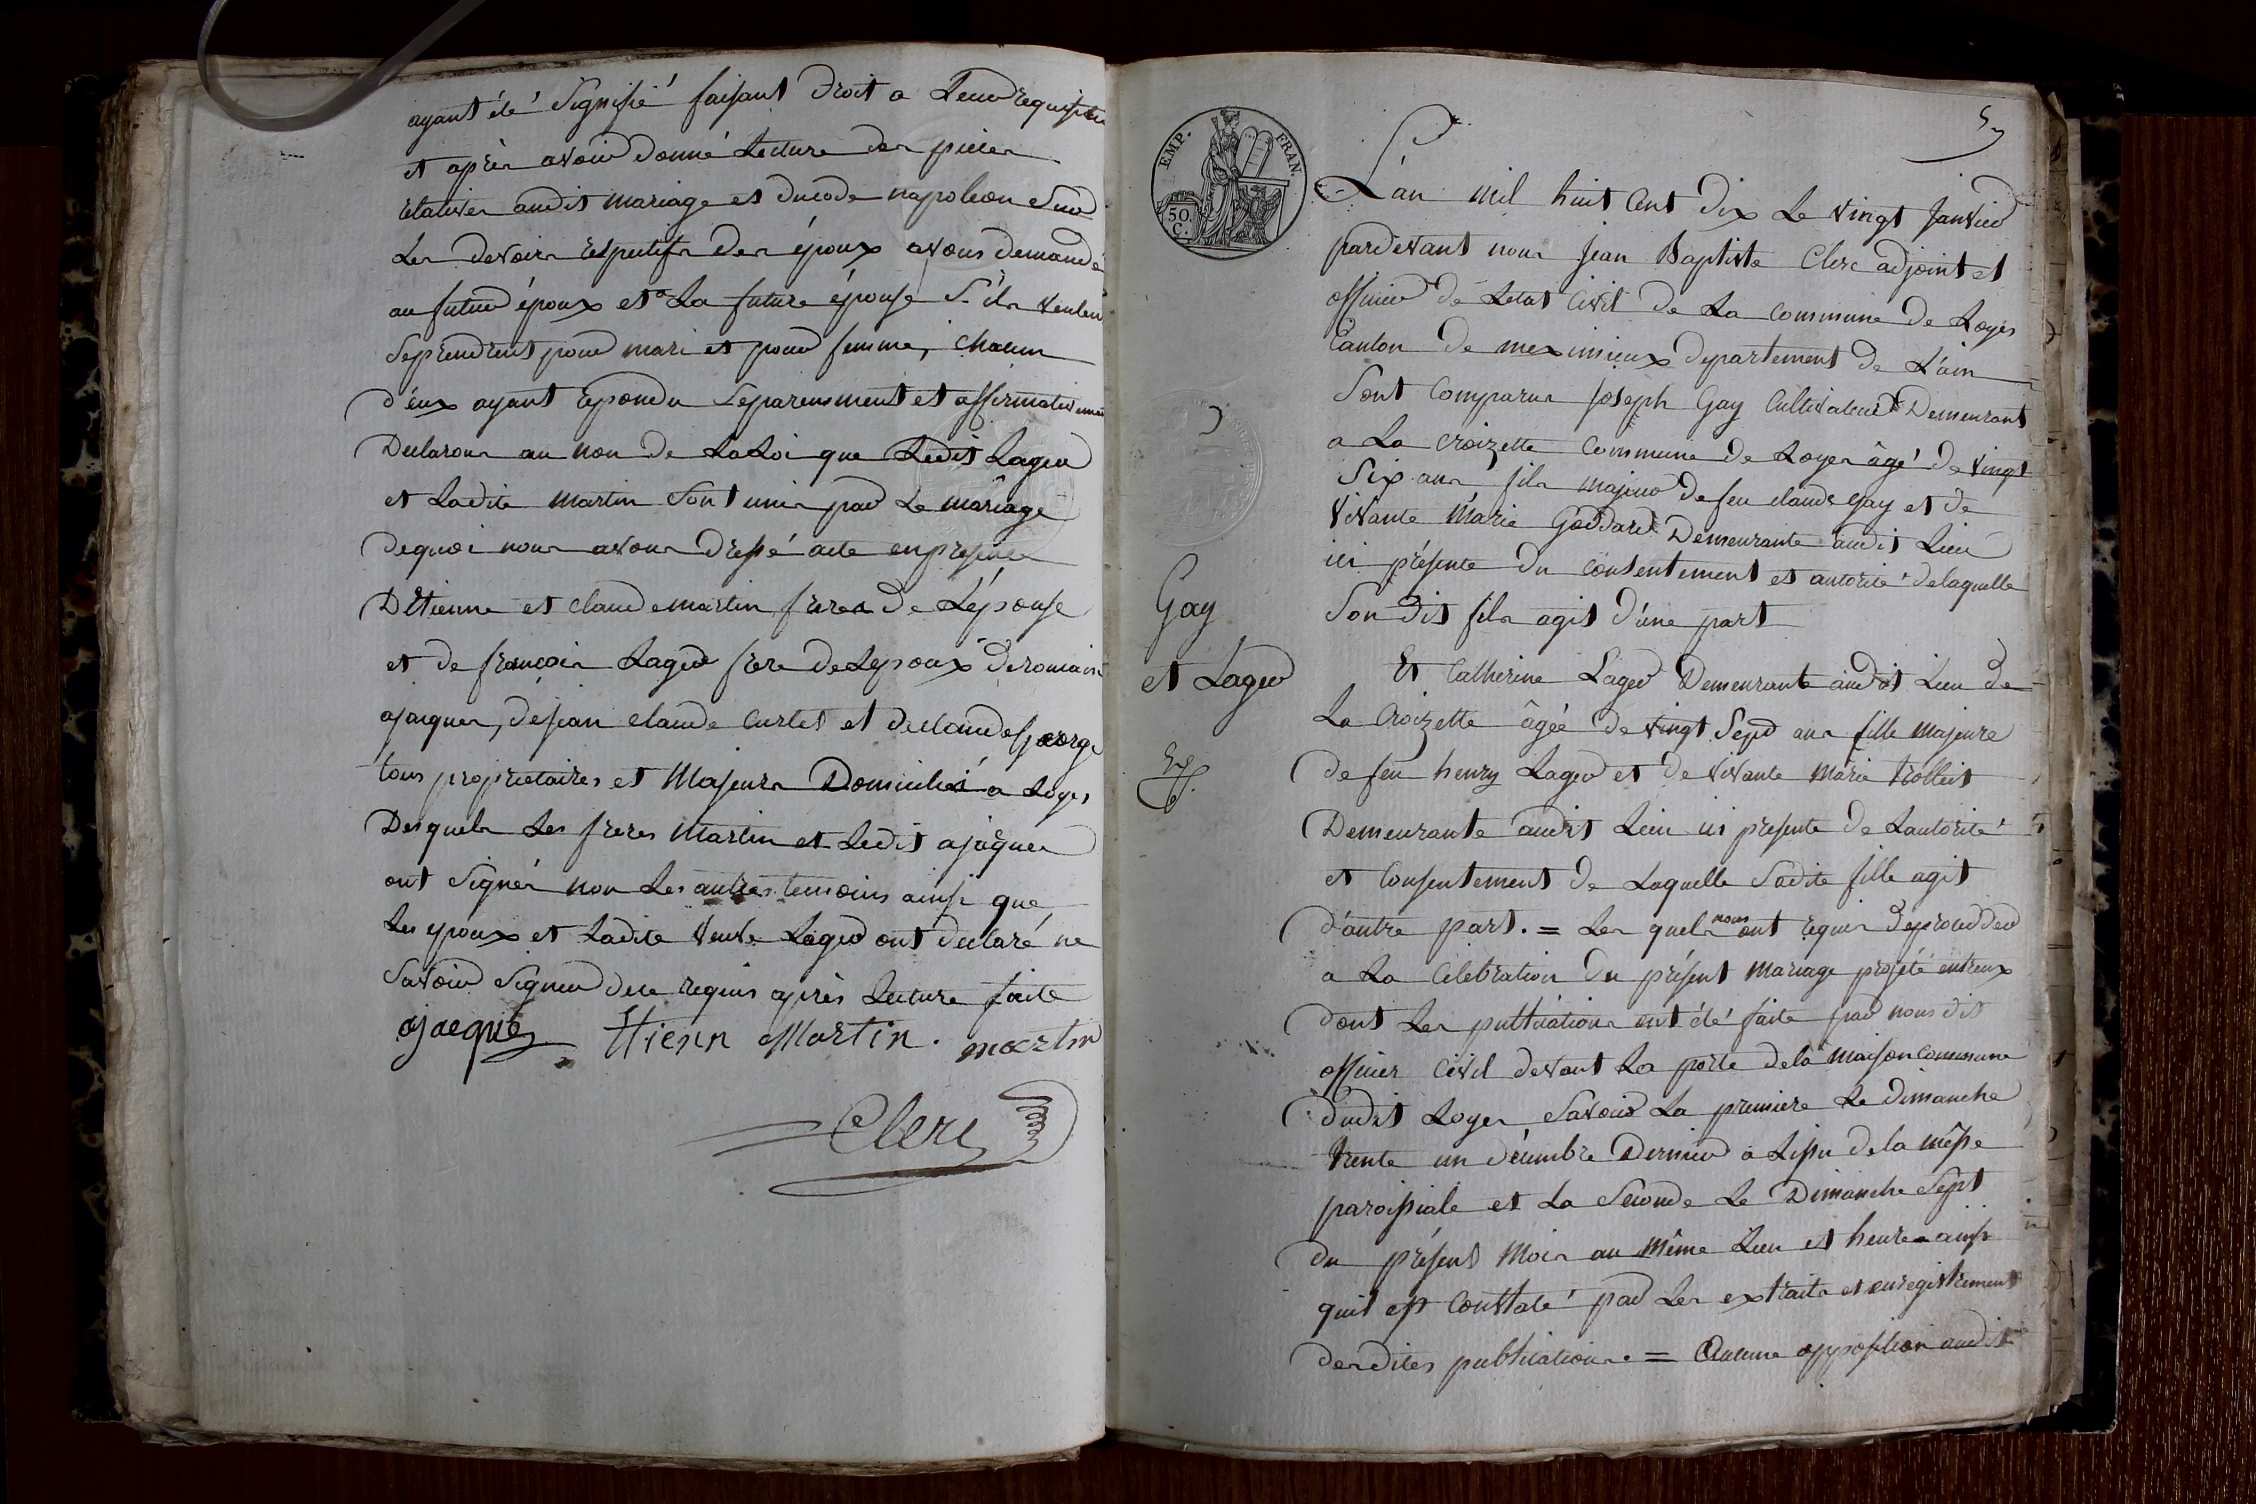 ayant été signifié faisant droit a Leur requisition
et après avoir donné Lecture des pieces
relatives audit mariage et du code napoleon Sur
Les devoirs respectifs des époux avons demandé
au futur époux et a La future épouse S'ils veulent
se prendrent pour mari et pour femme, chacun
d'eux ayant repondu Separemment et affirmativement
Declarons au non de La Loi que Ledit Lager
et Ladite Martin Sont unis par Le mariage
de quoi nous avons dressé acte en presence
D'Etienne et claude martin freres de L'épouse
et de françois Lager frere de Lepoux de romain
ajacques, de jean claude Curtet et de claude George
tous proprietaires et Majeurs Domiciliés a Loyes
Desquels Les freres Martin et Ledit ajaques
ont signés non Les autres temoins ainsi que
Les epoux et Ladite veuve Lager ont declaré ne
Savoir signer de ce requis après Lecture faite
ajacques Etienn Martin . martin
Clerc
EMP. FRAN.
50.
C.
5
L'an mil huit Cent dix Le vingt Janvier
pardevant nous Jean Baptiste Clerc adjoint et
officier de Letat Civil de La Commune de Loyes
Canton de meximieux departement de L'ain
Sont Comparus Joseph Gay Cultivateur Demeurant
a La Croizette Commune de Loyes âgé de vingt
Six ans fils majeur de feu claude Gay et de
vivante Marie Goddard Demeurante audit Lieu
ici présente du consentement et autorité de laquelle
Son dit fils agit d'une part
Gay
et Lager
Exp.
Et Catherine Lager Demeurante audit Lieu de
La Croizette âgée de vingt Sept ans fille Majeure
de feu henry Lager et de vivante Marie trolliet
Demeurante audit Lieu ici presente de Lautorité
et Consentement de Laquelle Sadite fille agit
d'autre part. = Les quels nous ont requis de proceder
a La Celebration du présent Mariage projeté entreux
dont Les publications ont été faite par nous dit
officier Civil devant La porte de la maison commune
dudit Loyes Savoir La premiere Le dimanche
trente un décembre Dernier a Lissu de la messe
paroissiale et La Seconde Le Dimanche Sept
du présent Mois au Même Lieu et heure ainsi
quil est Constaté par Les extraits et enregistrement
desdites publications. = Aucune opposition audit